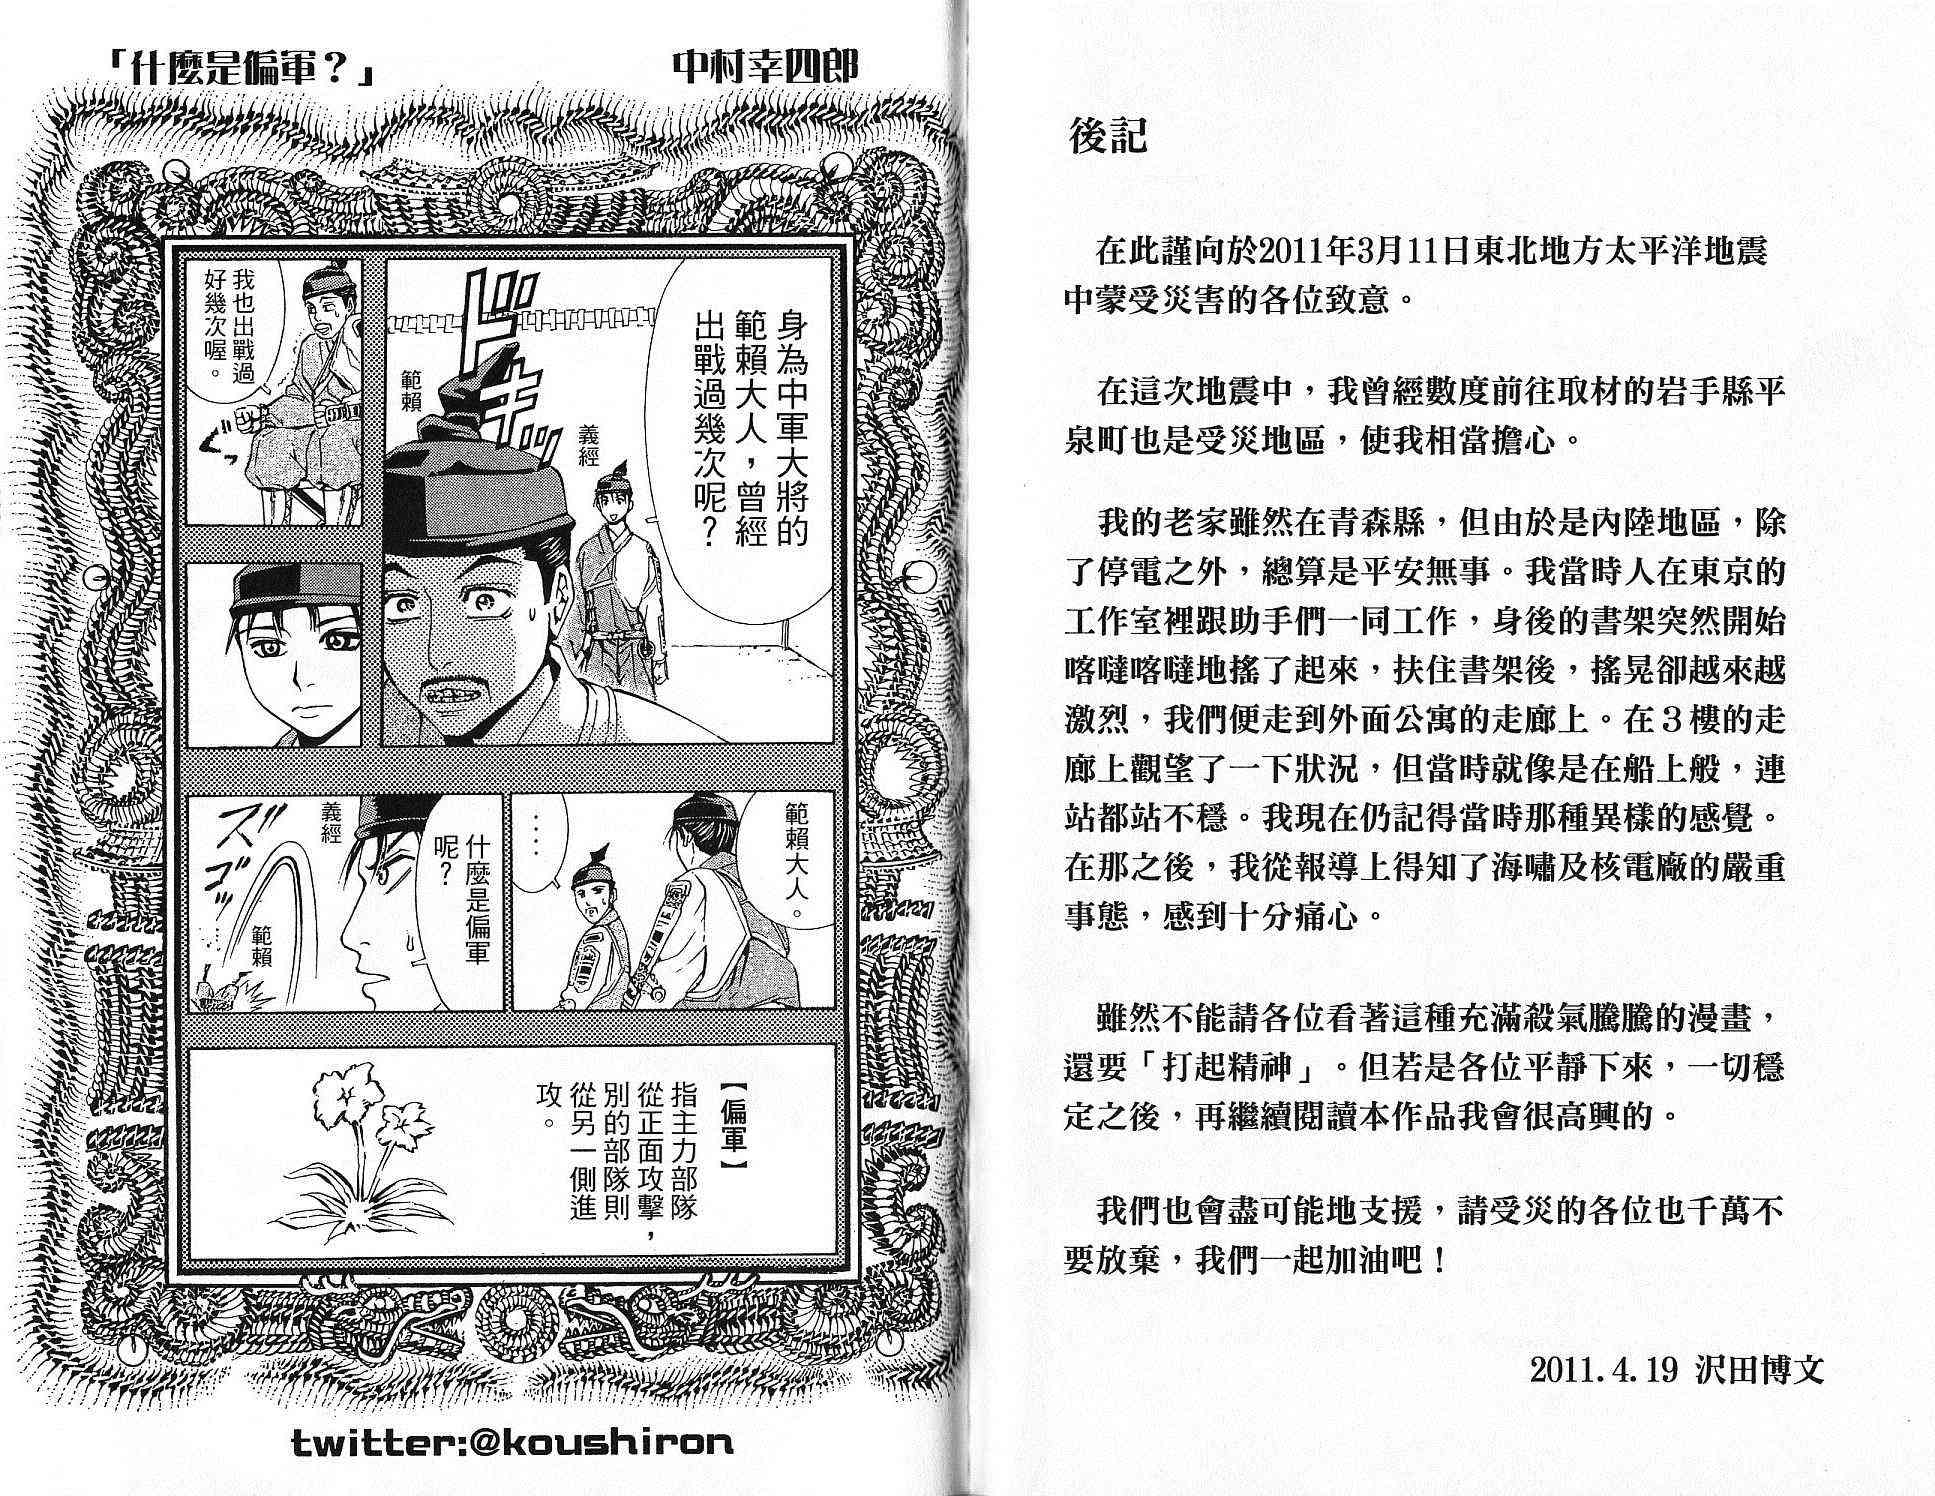 後記
在此謹向於2011年3月11日東北地方太平洋地震
中蒙受災害的各位致意。
在這次地震中，我曾經數度前往取材的岩手縣平
泉町也是受災地區，使我相當擔心。
我的老家雖然在青森縣，但由於是內陸地區，除
了停電之外，總算是平安無事。我當時人在東京的
工作室裡跟助手們一同工作，身後的書架突然開始
喀噠喀噠地搖了起來，扶住書架後，搖晃卻越來越
激烈，我們便走到外面公寓的走廊上。在３樓的走
廊上觀望了一下狀況，但當時就像是在船上般，連
站都站不穩。我現在仍記得當時那種異樣的感覺。
在那之後，我從報導上得知了海嘯及核電廠的嚴重
事態，感到十分痛心。
雖然不能請各位看著這種充滿殺氣騰騰的漫畫，
還要「打起精神」。但若是各位平靜下來，一切穩
定之後，再繼續閱讀本作品我會很高興的。
我們也會盡可能地支援，請受災的各位也千萬不
要放棄，我們一起加油吧！
2011.4.19 沢田博文
「什麼是偏軍？」
中村幸四郎
身為中軍大將的
範賴大人，曾經
出戰過幾次呢？
義經
ドドッ
ギギッ
範賴
我也出戰過
好幾次喔。
ぐっ
範賴大人。
‥‥
什麼是偏軍
呢？
義經
ズズ
ゴ
範賴
【偏軍】
指主力部隊
從正面攻擊，
別的部隊則
從另一側進
攻。
twitter:@koushiron